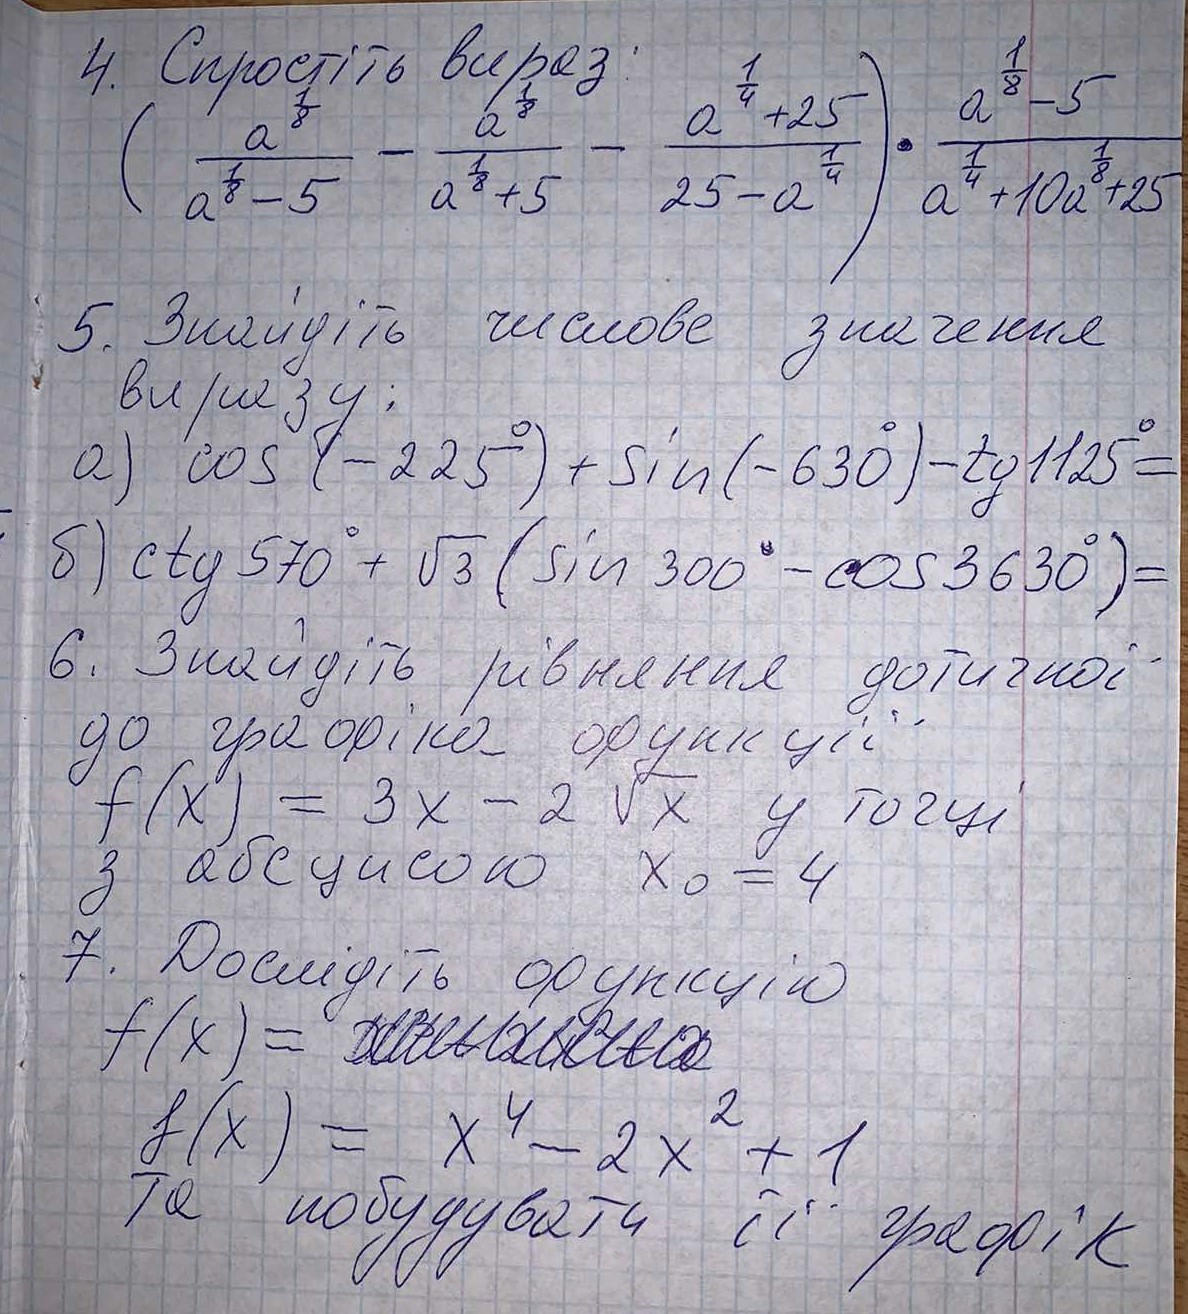 4. Спростіть вираз:
(a^{1/8}/(a^{1/8} - 5) - a^{1/8}/(a^{1/8} + 5) - (a^{1/4} + 25)/(25 - a^{1/4})) · (a^{1/8} - 5)/(a^{1/4} + 10a^{1/8} + 25)
5. Знайдіть числове значення
виразу:
а) cos(-225°) + sin(-630°) - tg1125° =
б) ctg570° + √3(sin300° - cos3630°) =
6. Знайдіть рівняння дотичної
до графіка функції
f(x) = 3x - 2√x у точці
з абсцисою x₀ = 4
7. Дослідіть функцію
f(x) =
f(x) = x⁴ - 2x² + 1
та побудувати її графік